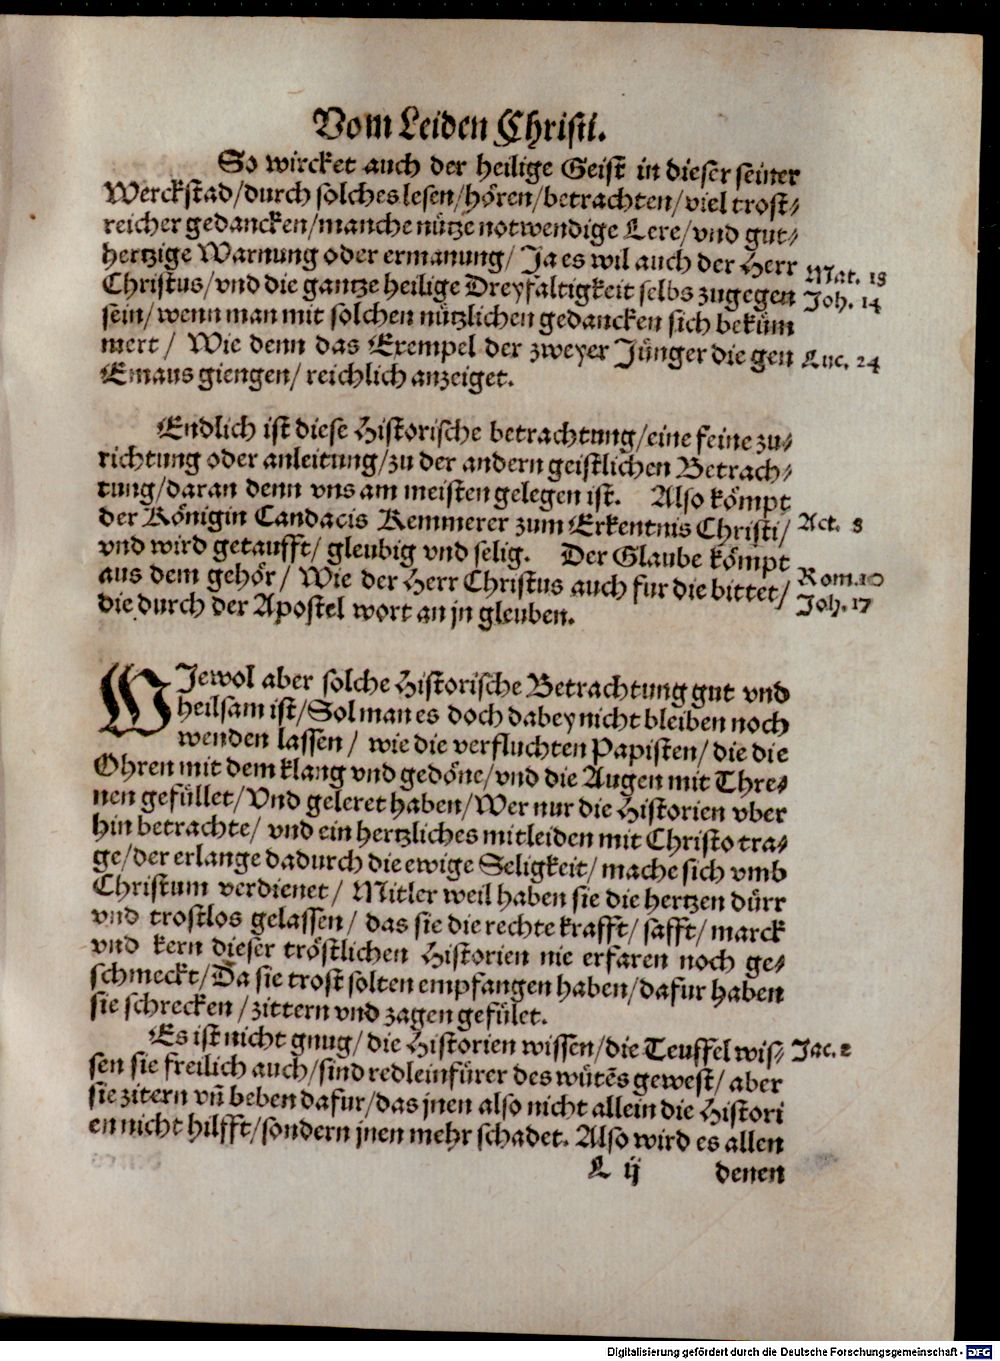 Vom Leiden Christi.
So wircket auch der heilige Geist in dieser seiner
Werckstad/durch solches lesen/hören/betrachten/viel trost⸗
reicher gedancken/manche nütze notwendige Lere/vnd gut⸗
hertzige Warnung oder ermanung/ Ja es wil auch der Herr
Christus/vnd die gantze heilige Dreyfaltigkeit selbs zugegen
sein/wenn man mit solchen nützlichen gedancken sich bekům
mert/ Wie denn das Exempel der zweyer Jünger die gen
Emaus giengen/ reichlich anzeiget.
Mat. 18
Joh. 14
Luc. 24
Endlich ist diese Historische betrachtung/eine feine zu⸗
richtung oder anleitung/zu der andern geistlichen Betrach⸗
tung/daran denn vns am meisten gelegen ist. Also kömpt
der Königin Candacis Kemmerer zum Erkentnis Christi/
vnd wird getaufft/ gleubig vnd selig. Der Glaube kömpt
aus dem gehör/ Wie der Herr Christus auch fur die bittet/
die durch der Apostel wort an jn gleuben.
Act. 8
Rom.10
Joh. 17
WJewol aber solche Historische Betrachtung gut vnd
heilsam ist/Sol man es doch dabey nicht bleiben noch
wenden lassen/ wie die verfluchten Papisten/ die die
Ohren mit dem klang vnd gedöne/vnd die Augen mit Thre⸗
nen gefüllet/Vnd geleret haben/Wer nur die Historien vber
hin betrachte/ vnd ein hertzliches mitleiden mit Christo tra⸗
ge/der erlange dadurch die ewige Seligkeit/ mache sich vmb
Christum verdienet/ Mitler weil haben sie die hertzen dürr
vnd trostlos gelassen/ das sie die rechte krafft/ safft/ marck
vnd kern dieser tröstlichen Historien nie erfaren noch ge⸗
schmeckt/Da sie trost solten empfangen haben/dafur haben
sie schrecken/zittern vnd zagen gefület.
Es ist nicht gnug/ die Historien wissen/die Teuffel wis⸗
sen sie freilich auch/sind redleinfürer des wütẽs gewest/ aber
sie zitern vñ beben dafur/das jnen also nicht allein die Histori
en nicht hilfft/sondern jnen mehr schadet. Also wird es allen
Jac. 2
L ij denen
Digitalisierung gefördert durch die Deutsche Forschungsgemeinschaft - DFG